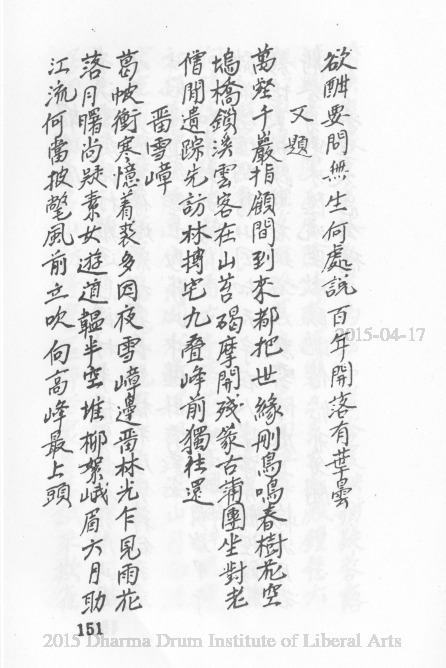 欲酬要問無生何處說百年開落有葉曇
又題
萬壑千巖指顧間到來都把世緣刪鳥鳴春樹花空
塢橋鎖溪雲客在山苔碣摩開殘篆古蒲團坐對老
僧閒遺踪先訪林摶宅九叠峰前獨往還
晋雪嶂
葛帔衝寒憶着裘多因夜雪嶂邊晋林光乍見雨花
落月曙尚疑素女遊道韞半空堆柳絮峨眉六月助
江流何當披氅風前立吹向高峰最上頭
151
2015-04-17
2015 Dharma Drum Institute of Liberal Arts